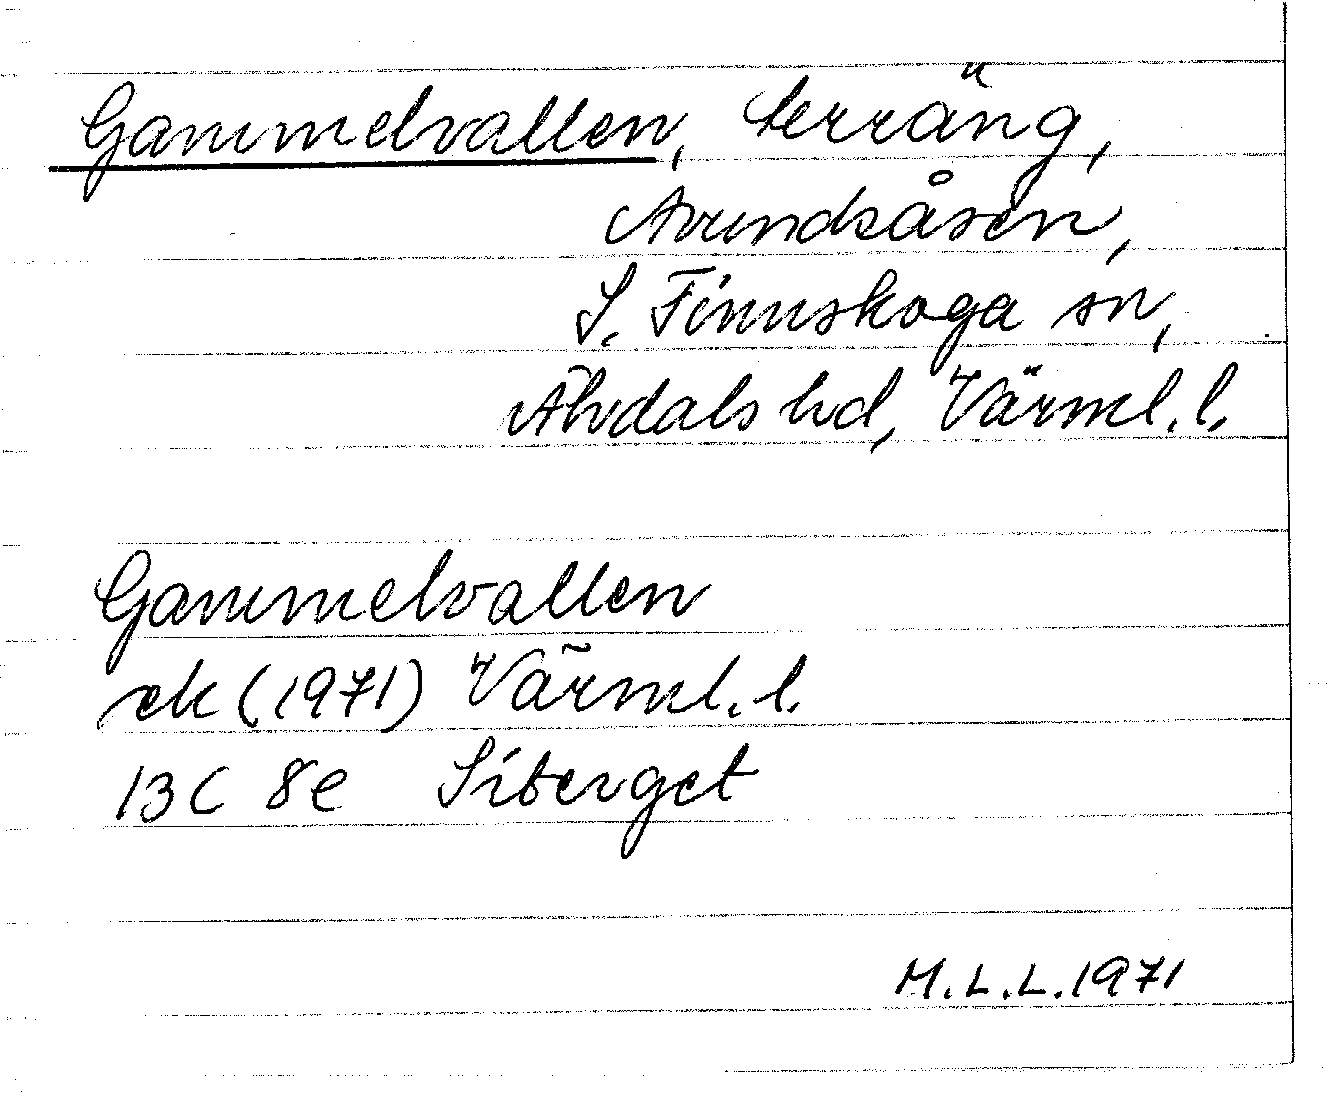 Gammelvallen, terräng,
Avundsåsen,
S. Finnskoga sn,
Älvdals hd, Värml. l.
Gammelvallen
ek (1971) Värml. l.
13 C 8e Siberget
M.L.L. 1971